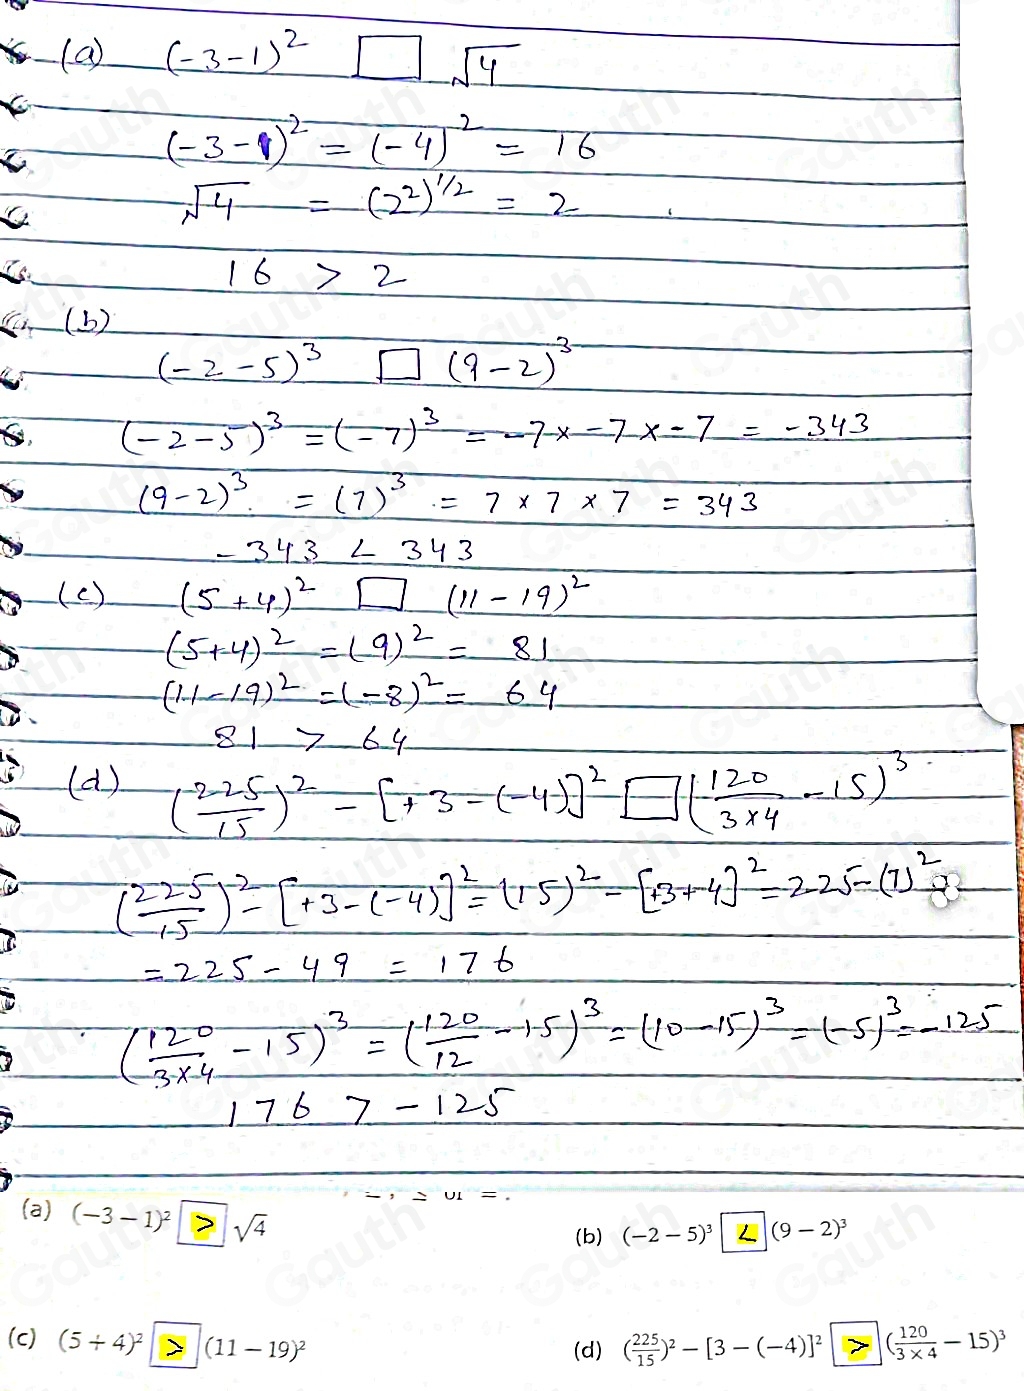 (a) (-3-1)² □ √4
(-3-1)² = (-4)² = 16
√4 = (2²)^1/2 = 2
16 > 2
(b)
(-2-5)³ □ (9-2)³
(-2-5)³ = (-7)³ = -7×-7×-7 = -343
(9-2)³ = (7)³ = 7×7×7 = 343
-343 < 343
(c) (5+4)² □ (11-19)²
(5+4)² = (9)² = 81
(11-19)² = (-8)² = 64
81 > 64
(d) (225/15)² - [+3-(-4)]² □ (120/3×4 - 15)³
(225/15)² - [+3-(-4)]² = (15)² - [+3+4]² = 225-(7)²
= 225 - 49 = 176
(120/3×4 - 15)³ = (120/12 - 15)³ = (10-15)³ = (-5)³ = -125
176 > -125
(a) (−3 − 1)² > √4
(b) (−2 − 5)³ < (9 − 2)³
(c) (5 + 4)² > (11 − 19)²
(d) (225/15)² − [3 − (−4)]² > (120/3 × 4 − 15)³
Gauth